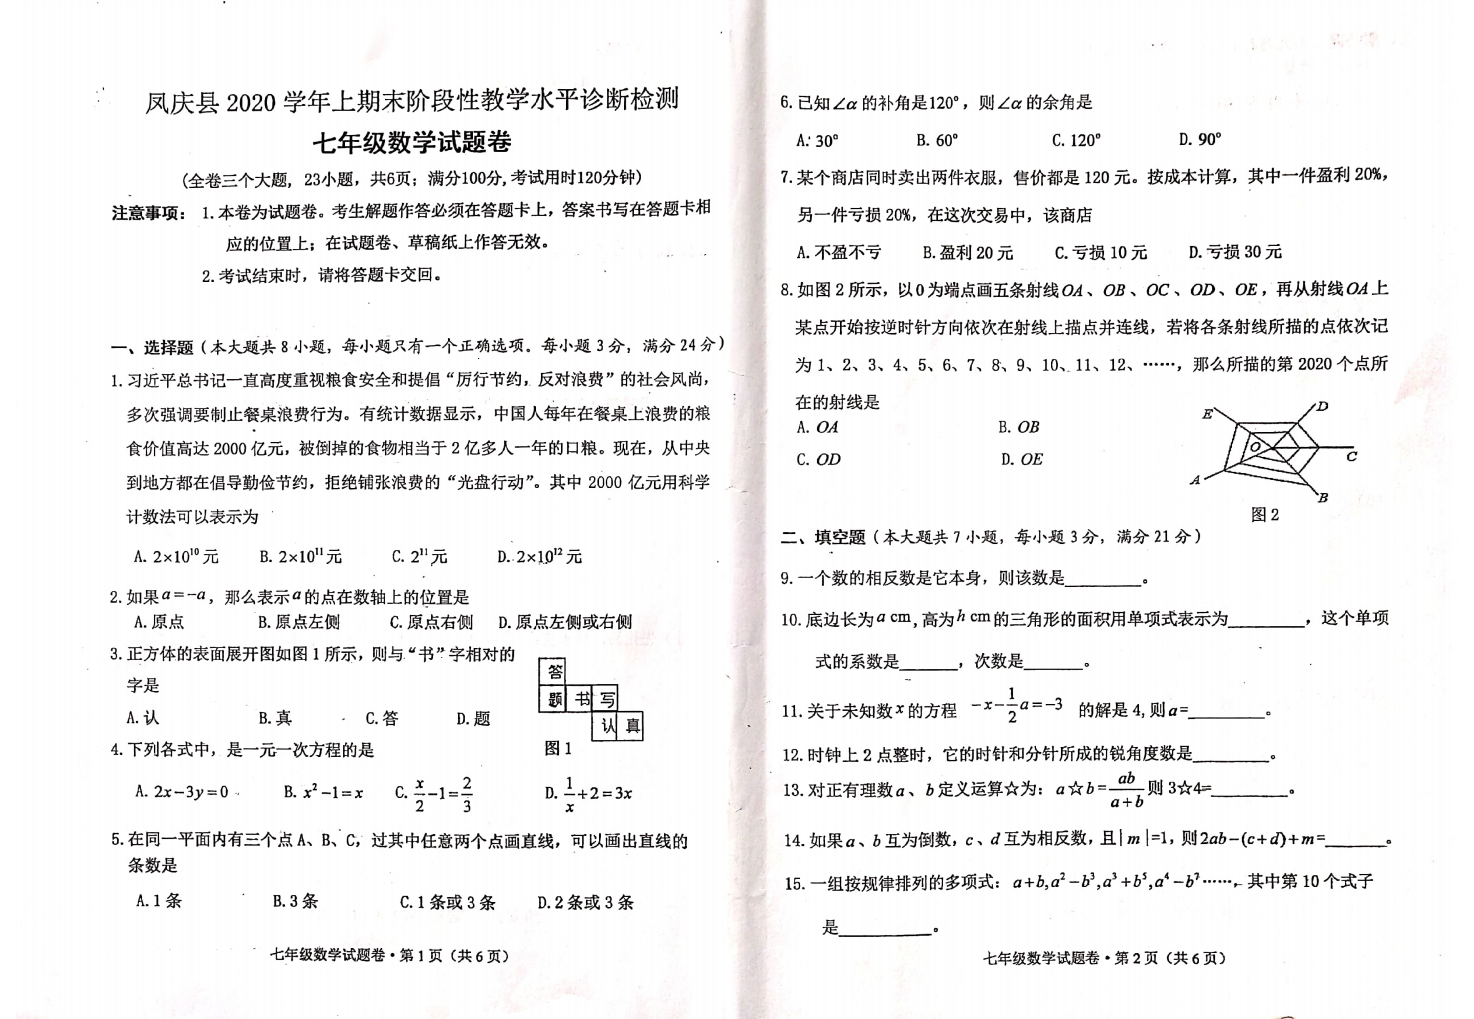 凤庆县 2020 学年上期末阶段性教学水平诊断检测
七年级数学试题卷
(全卷三个大题, 23小题，共6页；满分100分,考试用时120分钟)
注意事项： 1.本卷为试题卷。考生解题作答必须在答题卡上，答案书写在答题卡相
应的位置上；在试题卷、草稿纸上作答无效。
2.考试结束时，请将答题卡交回。
一、选择题（本大题共 8 小题，每小题只有一个正确选项。每小题 3 分，满分 24 分）
1.习近平总书记一直高度重视粮食安全和提倡“厉行节约，反对浪费”的社会风尚，
多次强调要制止餐桌浪费行为。有统计数据显示，中国人每年在餐桌上浪费的粮
食价值高达 2000 亿元，被倒掉的食物相当于 2 亿多人一年的口粮。现在，从中央
到地方都在倡导勤俭节约，拒绝铺张浪费的“光盘行动”。其中 2000 亿元用科学
计数法可以表示为
A. 2×10¹⁰ 元 B. 2×10¹¹ 元 C. 2¹¹ 元 D. 2×10¹² 元
2.如果 a=-a，那么表示 a 的点在数轴上的位置是
A.原点 B.原点左侧 C.原点右侧 D.原点左侧或右侧
3.正方体的表面展开图如图 1 所示，则与“书”字相对的
字是
A.认 B.真 C.答 D.题
答
题 书 写
认 真
图 1
4.下列各式中，是一元一次方程的是
A. 2x-3y=0 B. x²-1=x C. x/2-1=2/3 D. 1/x+2=3x
5.在同一平面内有三个点 A、B、C，过其中任意两个点画直线，可以画出直线的
条数是
A.1 条 B.3 条 C.1 条或 3 条 D.2 条或 3 条
七年级数学试题卷·第 1 页（共 6 页）
6.已知∠α 的补角是120°，则∠α 的余角是
A. 30° B. 60° C. 120° D. 90°
7.某个商店同时卖出两件衣服，售价都是 120 元。按成本计算，其中一件盈利 20%，
另一件亏损 20%，在这次交易中，该商店
A.不盈不亏 B.盈利 20 元 C.亏损 10 元 D.亏损 30 元
8.如图 2 所示，以 0 为端点画五条射线 OA、OB、OC、OD、OE，再从射线 OA 上
某点开始按逆时针方向依次在射线上描点并连线，若将各条射线所描的点依次记
为 1、2、3、4、5、6、7、8、9、10、11、12、……，那么所描的第 2020 个点所
在的射线是
A. OA B. OB
C. OD D. OE
E D
O C
A B
图 2
二、填空题（本大题共 7 小题，每小题 3 分，满分 21 分）
9.一个数的相反数是它本身，则该数是________。
10.底边长为 a cm,高为 h cm 的三角形的面积用单项式表示为________，这个单项
式的系数是______，次数是______。
11.关于未知数 x 的方程 -x-1/2a=-3 的解是 4,则 a=________。
12.时钟上 2 点整时，它的时针和分针所成的锐角度数是________。
13.对正有理数 a、b 定义运算☆为：a☆b=ab/(a+b) 则 3☆4=________。
14.如果 a、b 互为倒数，c、d 互为相反数，且|m|=1，则2ab-(c+d)+m=______。
15.一组按规律排列的多项式：a+b,a²-b³,a³+b⁵,a⁴-b⁷……，其中第 10 个式子
是_________。
七年级数学试题卷·第 2 页（共 6 页）